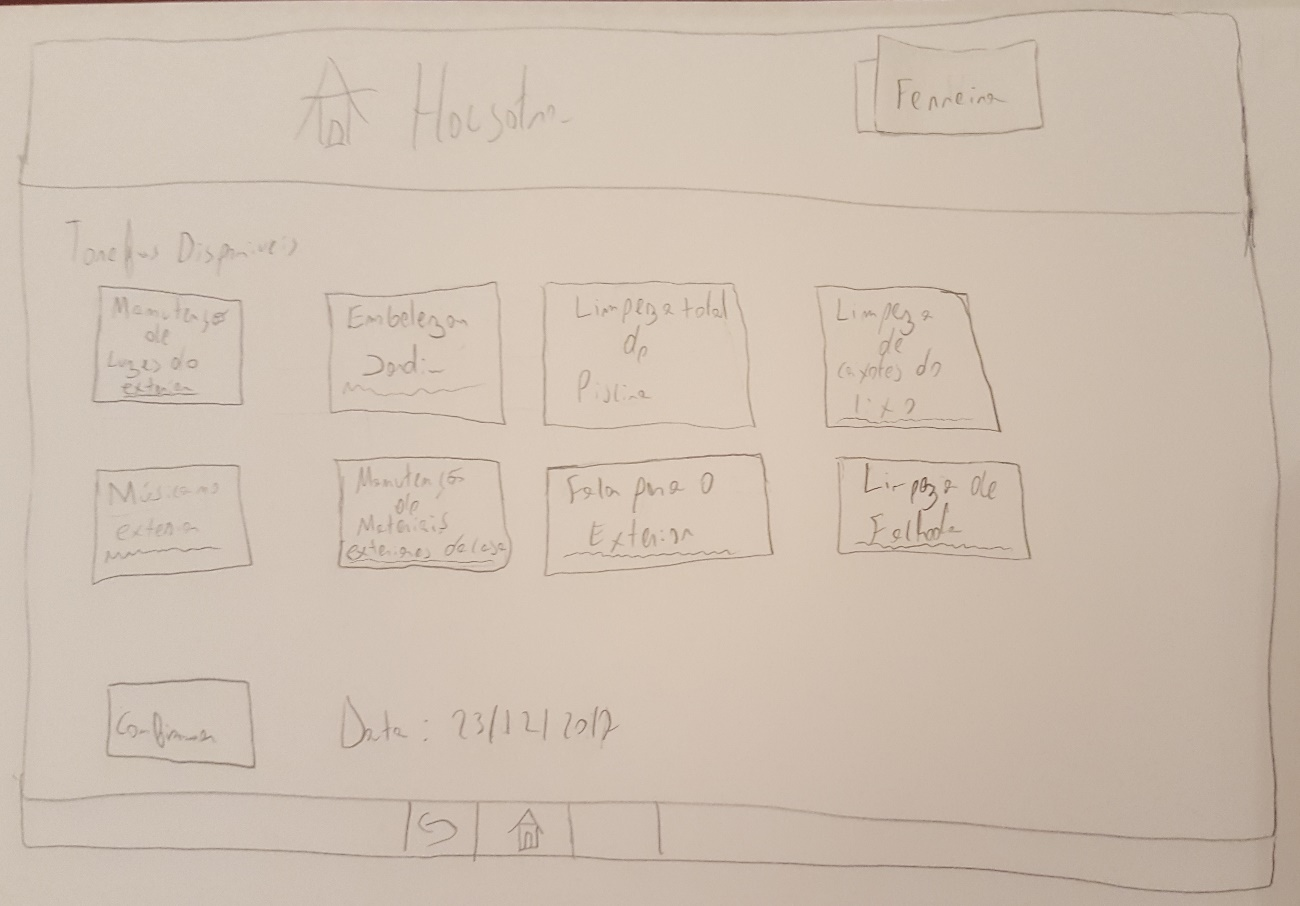 Ferreira
Tarefas Disponiveis
Manutenção
de
Luzes do
exterior
Embelezar
Jardim
Limpeza total
da
Piscina
Limpeza
de
caixotes do
lixo
Música no
exterior
Manutenção
de
Materiais
exteriores da casa
Fala para o
Exterior
Limpeza de
Confirmar
Data: 23/12/2017